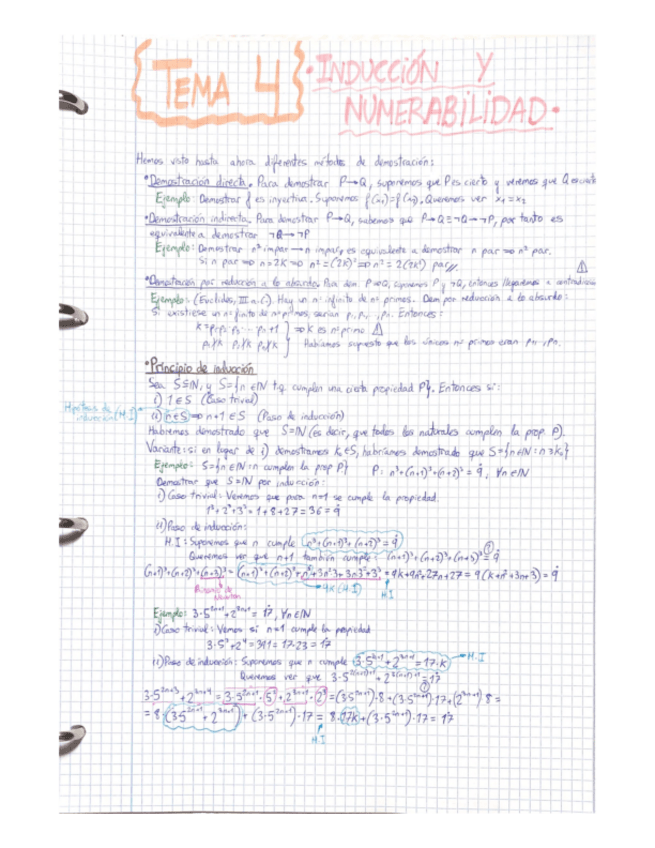 TEMA 4 · INDUCCIÓN Y NUMERABILIDAD ·
Hemos visto hasta ahora diferentes métodos de demostración:
• Demostración directa. Para demostrar P→Q, suponemos que P es cierto y veremos que Q es cierto
Ejemplo: Demostrar f es inyectiva. Suponemos f(x₁)=f(x₂). Queremos ver x₁=x₂
• Demostración indirecta. Para demostrar P→Q, sabemos que P→Q≡¬Q→¬P, por tanto es
equivalente a demostrar ¬Q→¬P
Ejemplo: Demostrar n² impar → n impar, es equivalente a demostrar n par ⇒ n² par.
Si n par ⇒ n=2K ⇒ n²=(2K)² ⇒ n²=2(2K²) par//
• Demostración por reducción a lo absurdo. Para dem. P⇒Q, suponemos P y ¬Q, entonces llegaremos a contradicción
Ejemplo: (Euclides, III a.C.) Hay un nº infinito de nº primos. Dem por reducción a lo absurdo:
Si existiese un nº finito de nº primos, serían p₁, p₂, ..., pₙ. Entonces:
K=p₁·p₂·p₃· ... ·pₙ+1 } ⇒ K es nº primo
p₁∤K p₂∤K pₙ∤K Habíamos supuesto que los únicos nº primos eran p₁, ..., pₙ.
• Principio de inducción
Sea S⊆ℕ, y S={n∈ℕ t.q. cumplen una cierta propiedad P}. Entonces si:
i) 1∈S (Caso trivial)
Hipótesis de inducción (H.I)
ii) n∈S ⇒ n+1∈S (Paso de inducción)
Habremos demostrado que S=ℕ (es decir, que todos los naturales cumplen la prop P).
Variante: si en lugar de i) demostramos K₀∈S, habríamos demostrado que S={n∈ℕ: n≥K₀}
Ejemplo: S={n∈ℕ: n cumplen la prop P} P: n³+(n+1)³+(n+2)³=9̇, ∀n∈ℕ
Demostrar que S=ℕ por inducción:
i) Caso trivial: Veremos que para n=1 se cumple la propiedad.
1³+2³+3³=1+8+27=36=9̇
ii) Paso de inducción:
H.I: Suponemos que n cumple n³+(n+1)³+(n+2)³=9̇
Queremos ver que n+1 también cumple (n+1)³+(n+2)³+(n+3)³=9̇
(n+1)³+(n+2)³+(n+3)³=(n+1)³+(n+2)³+n³+3n²3+3n3²+3³=9K+9n²+27n+27=9(K+n²+3n+3)=9̇
Binomio de Newton
9K (H.I)
H.I
Ejemplo: 3·5²ⁿ⁺¹+2³ⁿ⁺¹=17̇, ∀n∈ℕ
i) Caso trivial: Vemos si n=1 cumple la propiedad
3·5³+2⁴=391=17·23=17̇
ii) Paso de inducción: Suponemos que n cumple 3·5²ⁿ⁺¹+2³ⁿ⁺¹=17·K H.I
Queremos ver que 3·5²⁽ⁿ⁺¹⁾⁺¹+2³⁽ⁿ⁺¹⁾⁺¹=17̇
3·5²ⁿ⁺³+2³ⁿ⁺⁴=3·5²ⁿ⁺¹·5²+2³ⁿ⁺¹·2³=(3·5²ⁿ⁺¹)·8+(3·5²ⁿ⁺¹)·17+(2³ⁿ⁺¹)·8=
=8·(3·5²ⁿ⁺¹+2³ⁿ⁺¹)+(3·5²ⁿ⁺¹)·17=8·17K+(3·5²ⁿ⁺¹)·17=17̇
H.I